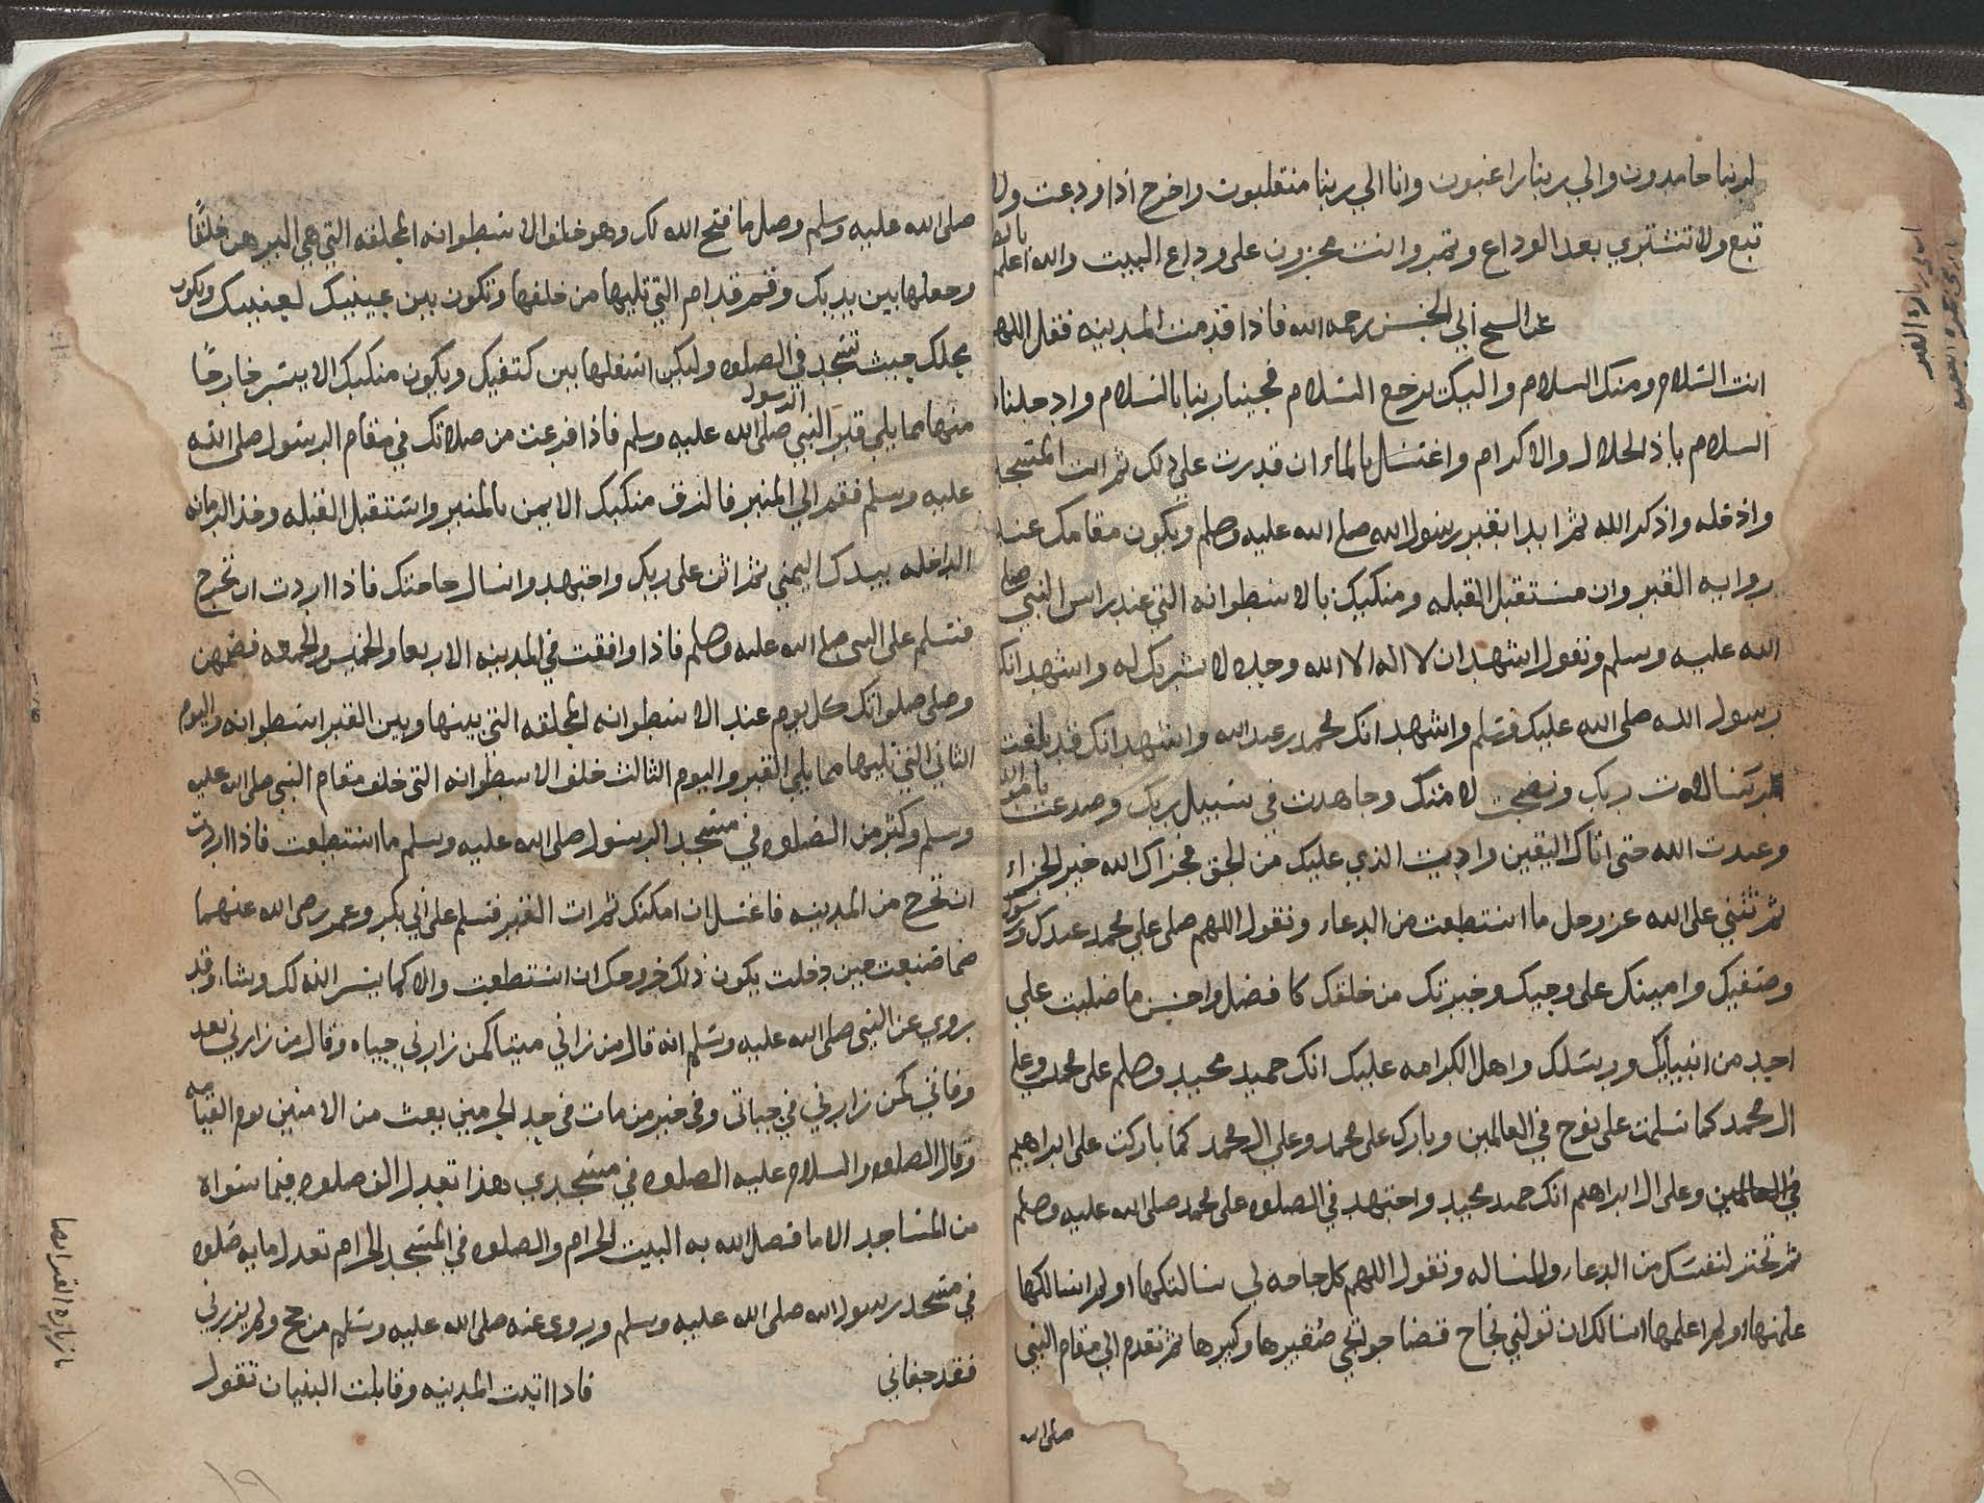 لربنا حامدون والي ربنا راغبون وانا الي ربنا منقلبون واخرج اذا ودعت ولا
تبع ولا تشتري بعد الوداع وتمر وانت محزون على وداع البيت والله اعلم
عن السح أبي الحسن رحمه الله فاذا قدمت المدينه فقل اللهم
انت السّلام ومنك السلام واليك يرجع السّلام فحينا ربنا بالسلام وادخلنا
السلام ياذ الجلال والاكرام واغتسَل بالماء ان قدرت على ذلك ثم ائت المسجد
وادخله واذكر الله ثم ابدا بقبر رسول الله صلى الله عليه وسلم ويكون مقامك عند
روايه القبر وان مستقبل القبله ومنكبك بالاسطوانه التي عند راس النبي صلى
الله عليه وسلم وتقول اشهد ان لا اله الا الله وحده لا شريك له واشهد انك
رسول الله صلى الله عليك وسَلم واشهد انك محمد بن عبد الله واشهد انك قد بلغت
رسَالات ربك ونصحت لامتك وجاهدت في سَبيل ربك وصدعت
وعبدت الله حتى اتاك اليقين واديت الذي عليك من الحق فجزاك الله خير الجزاء
ثم تثني على الله عز وجل ما استطعت من الدعاء وتقول اللهم صلى على محمد عبدك
وصفيك وامينك على وحيك وخيرتك من خلقك كافضل واحسن ما صليت على
احد من انبيايك ورسَلك واهل الكرامه عليك انك حميد مجيد وسلم على محمد وعلى
ال محمد كما سَلمت على نوح في العالمين وبارك على محمد وعلى ال محمد كما باركت على ابراهيم
في العالمين وعلى ال ابراهيم انك حميد مجيد واجتهد في الصلوه على محمد صلى الله عليه وسلم
ثم تخير لنفسَك من الدعاء والمساله وتقول اللهم كل حاجه لي سالتكها او لم اسالكها
علمتها او لم اعلمها اسالك ان تولني نجاح قضا حوائجي صغيرها وكبيرها ثم تقدم الى مقام النبي
صلى الله
صلى الله عليه وسلم وصل ما فتح الله لك وهو خلف الاسطوانه المخلقه التي هي اكبرهن خلقًا
وجعلها بين يديك وقم قدام التي تليها من خلفها وتكون بين عينيك ويكون
منها مما يلي قبر النبي الرسول صلى الله عليه وسلم فاذا فرغت من صلاتك في مقام الرسول صلى الله
عليه وسلم فقم الى المنبر فالزق منكبك الايمن بالمنبر واستقبل القبله وخذ الرمانه
الداخله بيدك اليمني ثم اثن على ربك واجتهد واسال حاجتك فاذا اردت ان تخرج
فتسلم على النبي صلى الله عليه وسلم فاذا وافقت في المدينه الاربعا والخميس والجمعه فصمهن
وصلي صلواتك كل يوم عند الاسطوانه المخلقه التي بينها وبين القبر اسطوانه واليوم
الثاني التي تليها مما يلي القبر واليوم الثالث خلف الاسطوانه التي خلف مقام النبي صلى الله عليه
وسلم وكثر من الصلوه في مسَجد الرسول صلى الله عليه وسلم ما استطعت فاذا اردت
ان تخرج من المدينه فاغتسل ان امكنك ثم ات القبر فتسلم على ابي بكر وعمر رضي الله عنهما
كما صنعت حين دخلت يكون ذلك خروجك ان استطعت والا كما يسر الله لك وشا وقد
يروي عن النبي صلى الله عليه وسَلم انه قال من زارني ميتا كمن زارني حيا وقال من زارني بعد
وفاتي كمن زارني في حياتي وفي خبر من مات في احد الحرمين بعث من الامنين يوم القيامه
وقال الصلوه والسلام عليه الصلوه في مسجدي هذا تعدل الف صلوه فيما سَواه
من المساجد الا ما فضل الله به البيت الحرام والصلوه في المسَجد الحرام تعدل مايه صَلوه
في مسجد رسول الله صلى الله عليه وسلم ويروى عنه صلى الله عليه وسَلم من حج ولم يزرني
فقد جفاني فاذا اتيت المدينه وقابلت البنيان تقول